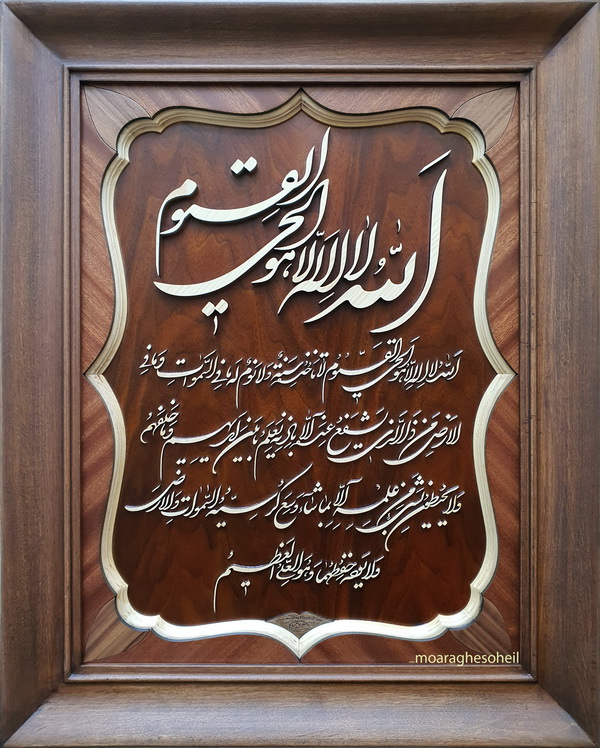 الله لا اله الا هو الحی القیوم
الله لا اله الا هو الحی القیوم لا تاخذه سنة ولا نوم له ما فی السموات وما فی
الارض من ذا الذی یشفع عنده الا باذنه یعلم ما بین ایدیهم وما خلفهم
ولا یحیطون بشئ من علمه الا بما شاء وسع کرسیه السموات والارض
ولا یؤده حفظهما وهو العلی العظیم
_moaraghesoheil